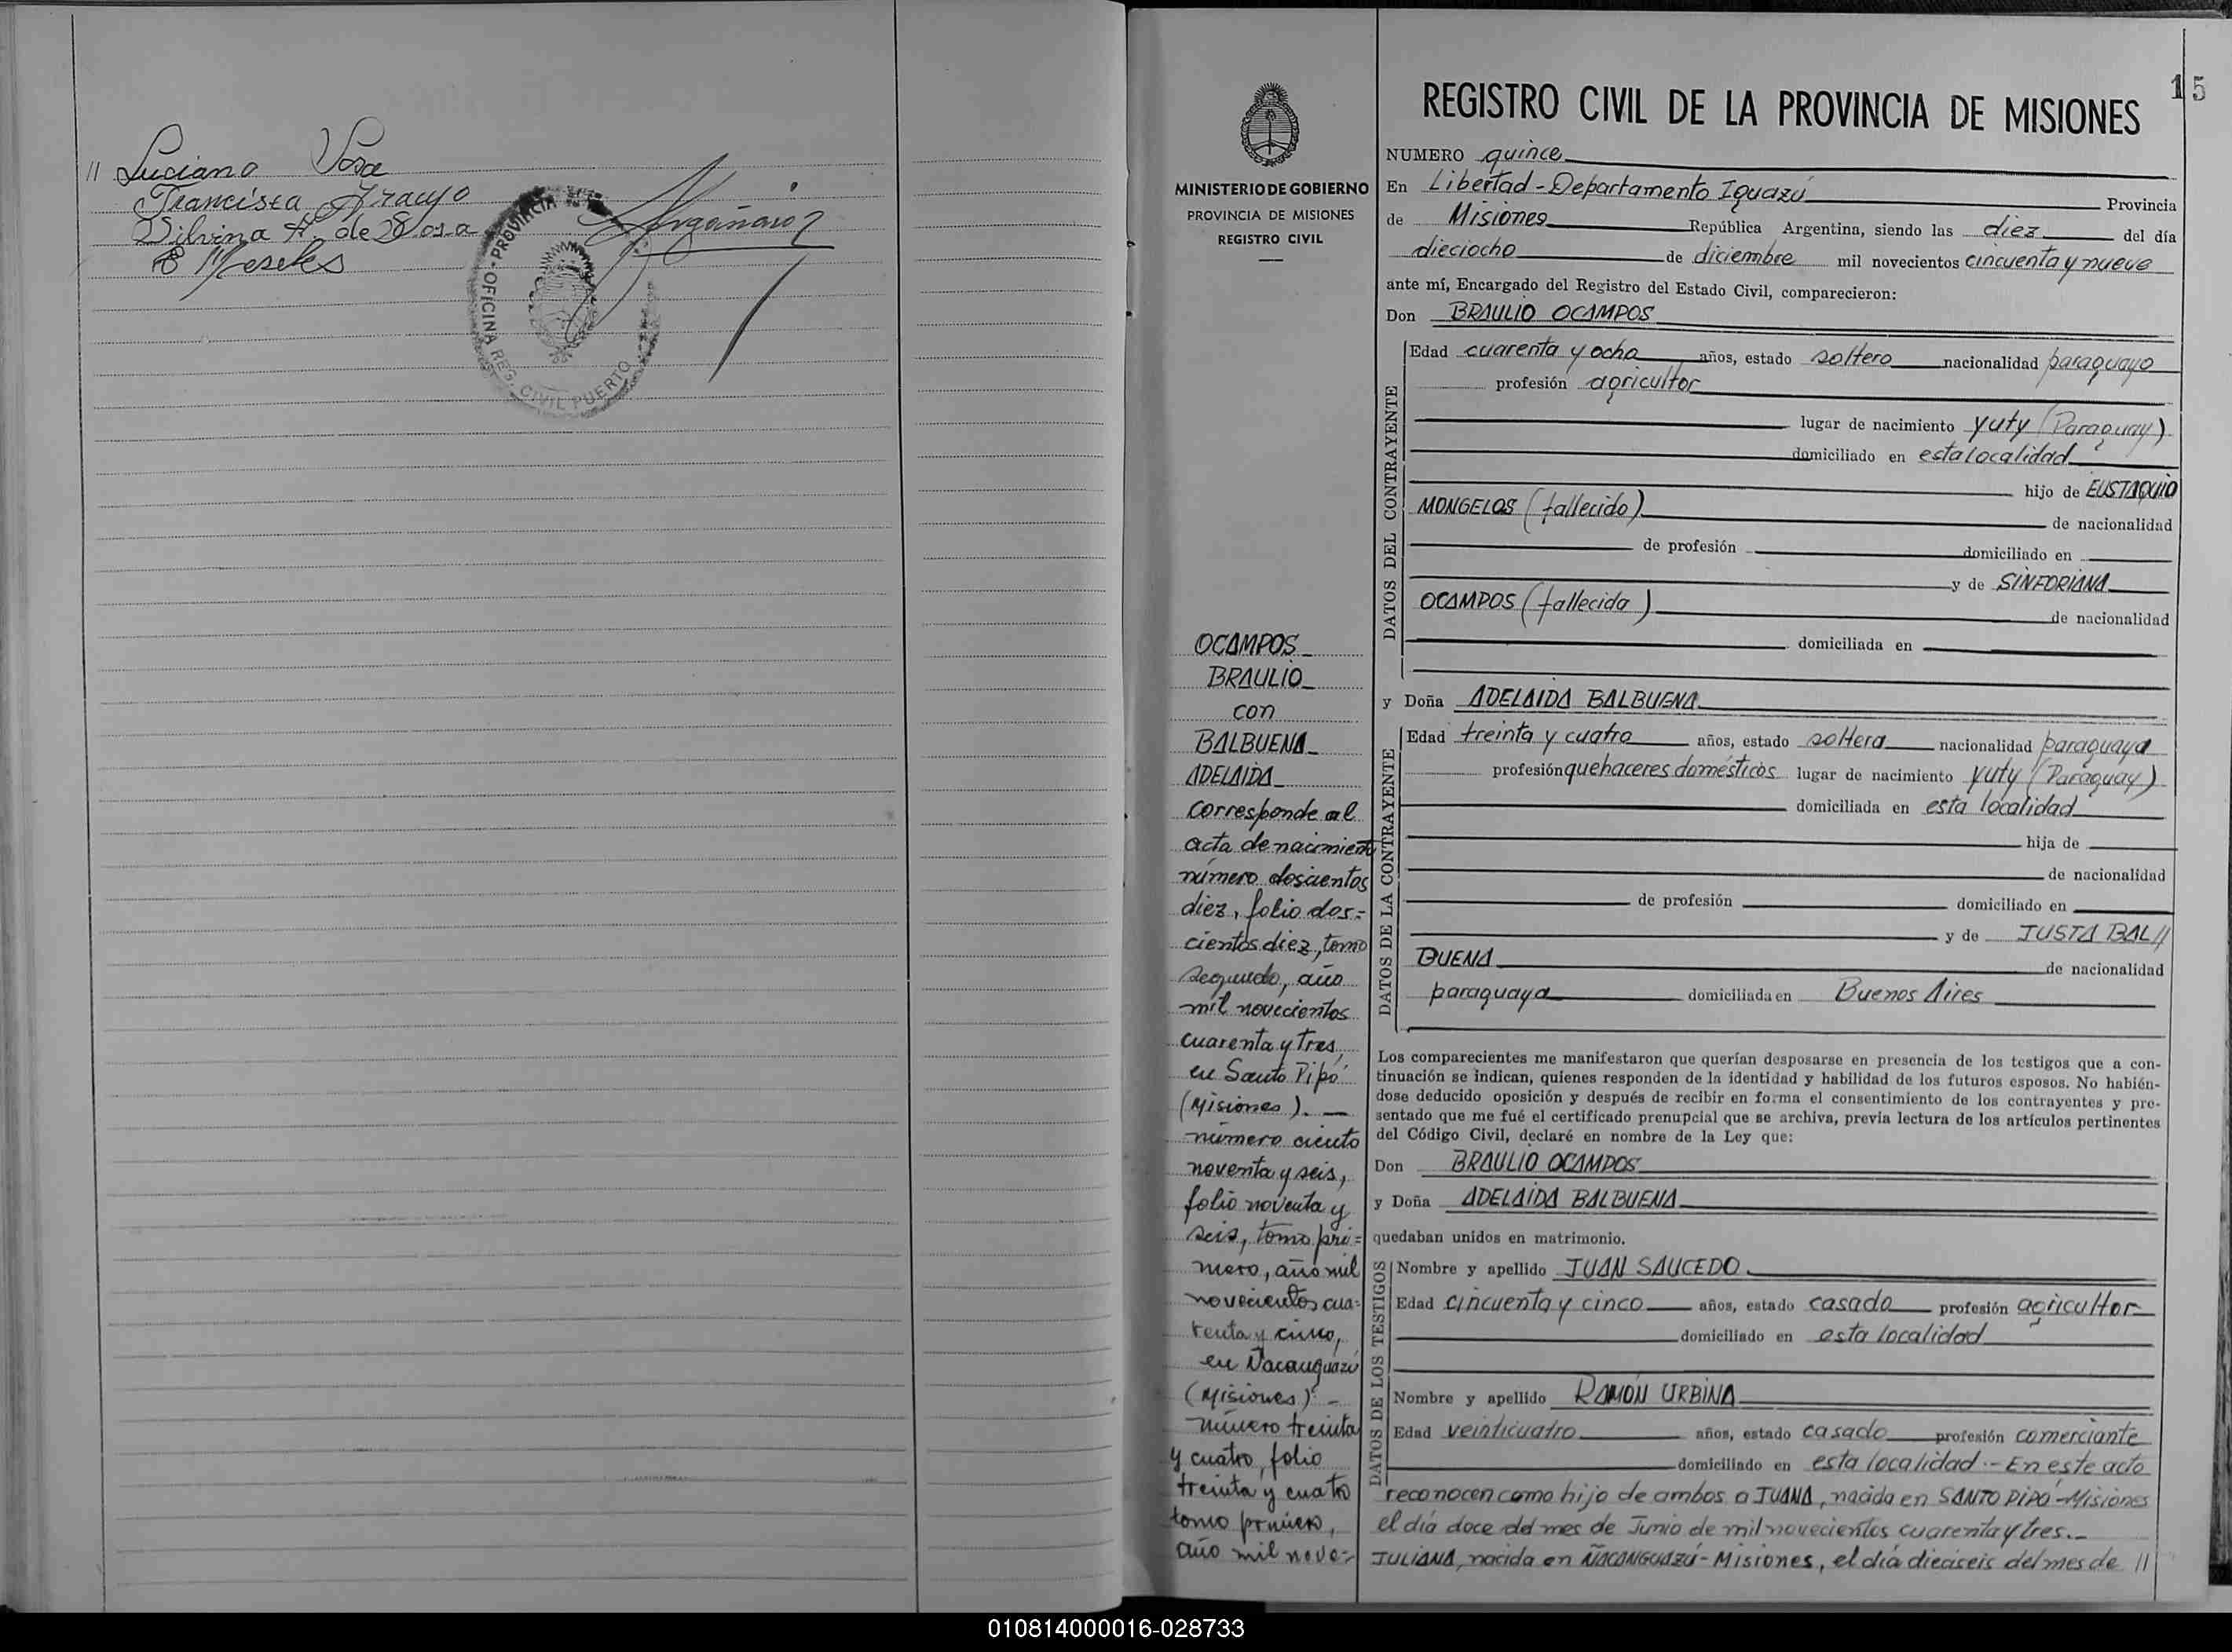 // Luciano Sosa
Francisca Araujo
Silvina A. de Sosa
OFICINA REG. CIVIL PUERTO - PROVINCIA
15
REGISTRO CIVIL DE LA PROVINCIA DE MISIONES
MINISTERIO DE GOBIERNO
PROVINCIA DE MISIONES
REGISTRO CIVIL
NUMERO quince
En Libertad - Departamento Iguazú Provincia
de Misiones República Argentina, siendo las diez del día
dieciocho de diciembre mil novecientos cincuenta y nueve
ante mí, Encargado del Registro del Estado Civil, comparecieron:
Don BRAULIO OCAMPOS
DATOS DEL CONTRAYENTE
Edad cuarenta y ocho años, estado soltero nacionalidad paraguayo
profesión agricultor
lugar de nacimiento Yuty (Paraguay)
domiciliado en esta localidad
hijo de EUSTAQUIO
MONGELOS (fallecido)
de nacionalidad
de profesión domiciliado en
y de SINFORIANA
OCAMPOS (fallecida)
de nacionalidad
domiciliada en
y Doña ADELAIDA BALBUENA
DATOS DE LA CONTRAYENTE
Edad treinta y cuatro años, estado soltera nacionalidad paraguaya
profesión quehaceres domésticos lugar de nacimiento Yuty (Paraguay)
domiciliada en esta localidad
hija de
de nacionalidad
de profesión domiciliado en
y de JUSTA BAL//
BUENA de nacionalidad
paraguaya domiciliada en Buenos Aires
Los comparecientes me manifestaron que querían desposarse en presencia de los testigos que a con-
tinuación se indican, quienes responden de la identidad y habilidad de los futuros esposos. No habién-
dose deducido oposición y después de recibir en forma el consentimiento de los contrayentes y pre-
sentado que me fué el certificado prenupcial que se archiva, previa lectura de los artículos pertinentes
del Código Civil, declaré en nombre de la Ley que:
Don BRAULIO OCAMPOS
y Doña ADELAIDA BALBUENA
quedaban unidos en matrimonio.
DATOS DE LOS TESTIGOS
Nombre y apellido JUAN SAUCEDO
Edad cincuenta y cinco años, estado casado profesión agricultor
domiciliado en esta localidad
Nombre y apellido RAMÓN URBINA
Edad veinticuatro años, estado casado profesión comerciante
domiciliado en esta localidad.- En este acto
reconocen como hija de ambos a JUANA, nacida en SANTO PIPO-Misiones
el día doce del mes de Junio de mil novecientos cuarenta y tres.-
JULIANA, nacida en ÑACANGUAZÚ-Misiones, el día dieciseis del mes de //
OCAMPOS
BRAULIO
con
BALBUENA
ADELAIDA
corresponde al
acta de nacimiento
número doscientos
diez, folio dos=
cientos diez, tomo
segundo, año
mil novecientos
cuarenta y tres,
en Santo Pipó
(Misiones). -
número ciento
noventa y seis,
folio noventa y
seis, tomo pri=
mero, año mil
novecientos cua=
renta y cinco,
en Ñacanguazú
(Misiones) -
número treinta
y cuatro, folio
treinta y cuatro
tomo primero,
año mil nove=
010814000016-028733